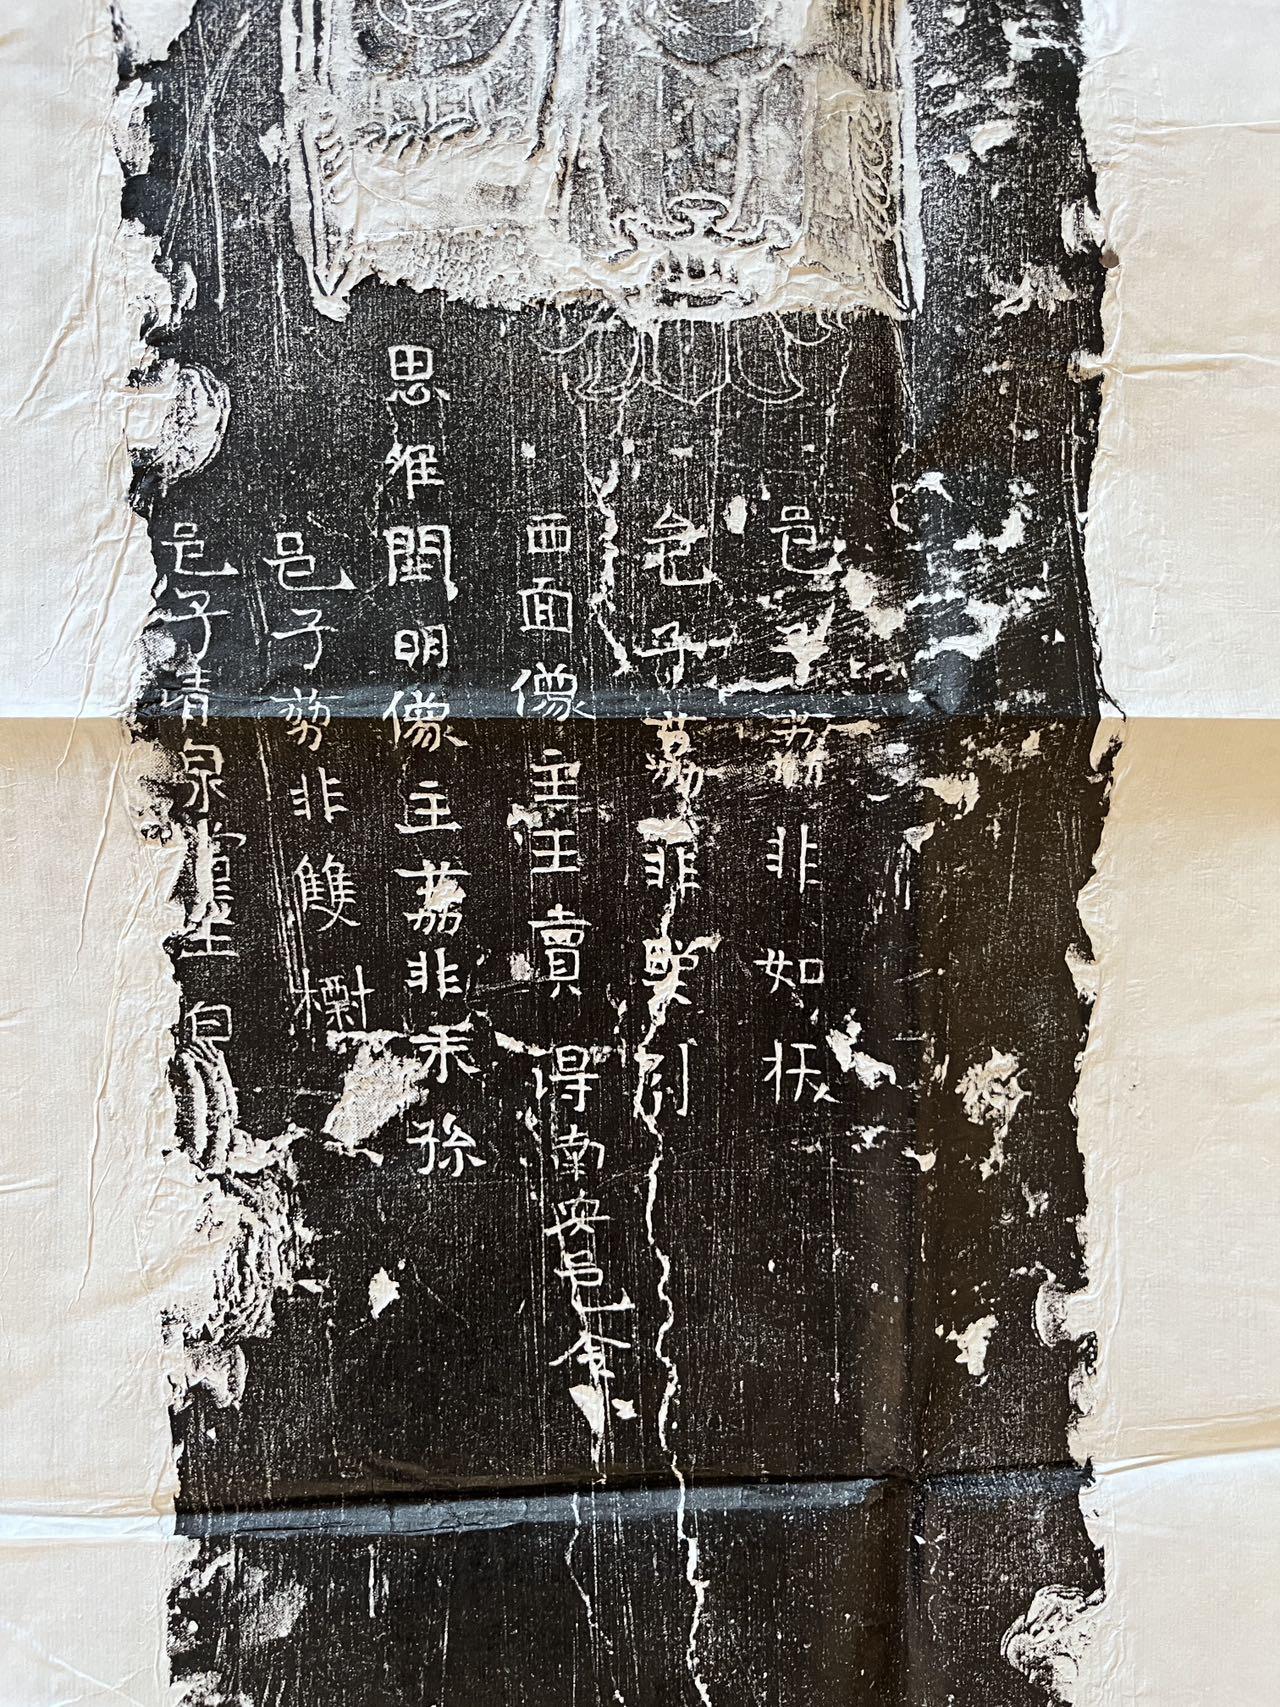 邑子荔非如栰
邑子荔非㸑引
西面像主王賣得南安邑令
思維開明像主荔非禾孫
邑子荔非雙樹
邑子清泉